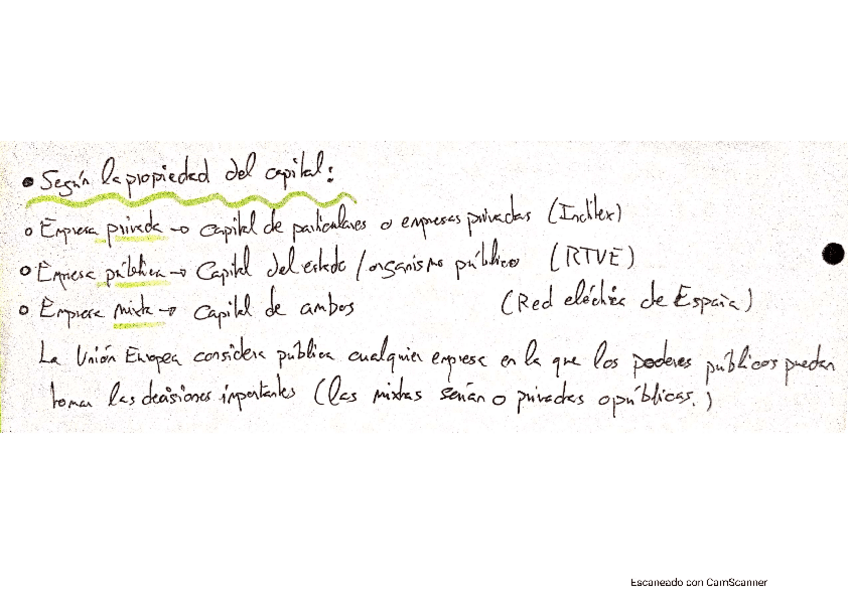 • Según la propiedad del capital:
o Empresa privada → Capital de particulares o empresas privadas (Inditex)
o Empresa pública → Capital del estado / organismo público (RTVE)
o Empresa mixta → Capital de ambos (Red eléctrica de España)
La Unión Europea considera pública cualquier empresa en la que los poderes públicos puedan
tomar las decisiones importantes (las mixtas serían o privadas o públicas.)
Escaneado con CamScanner